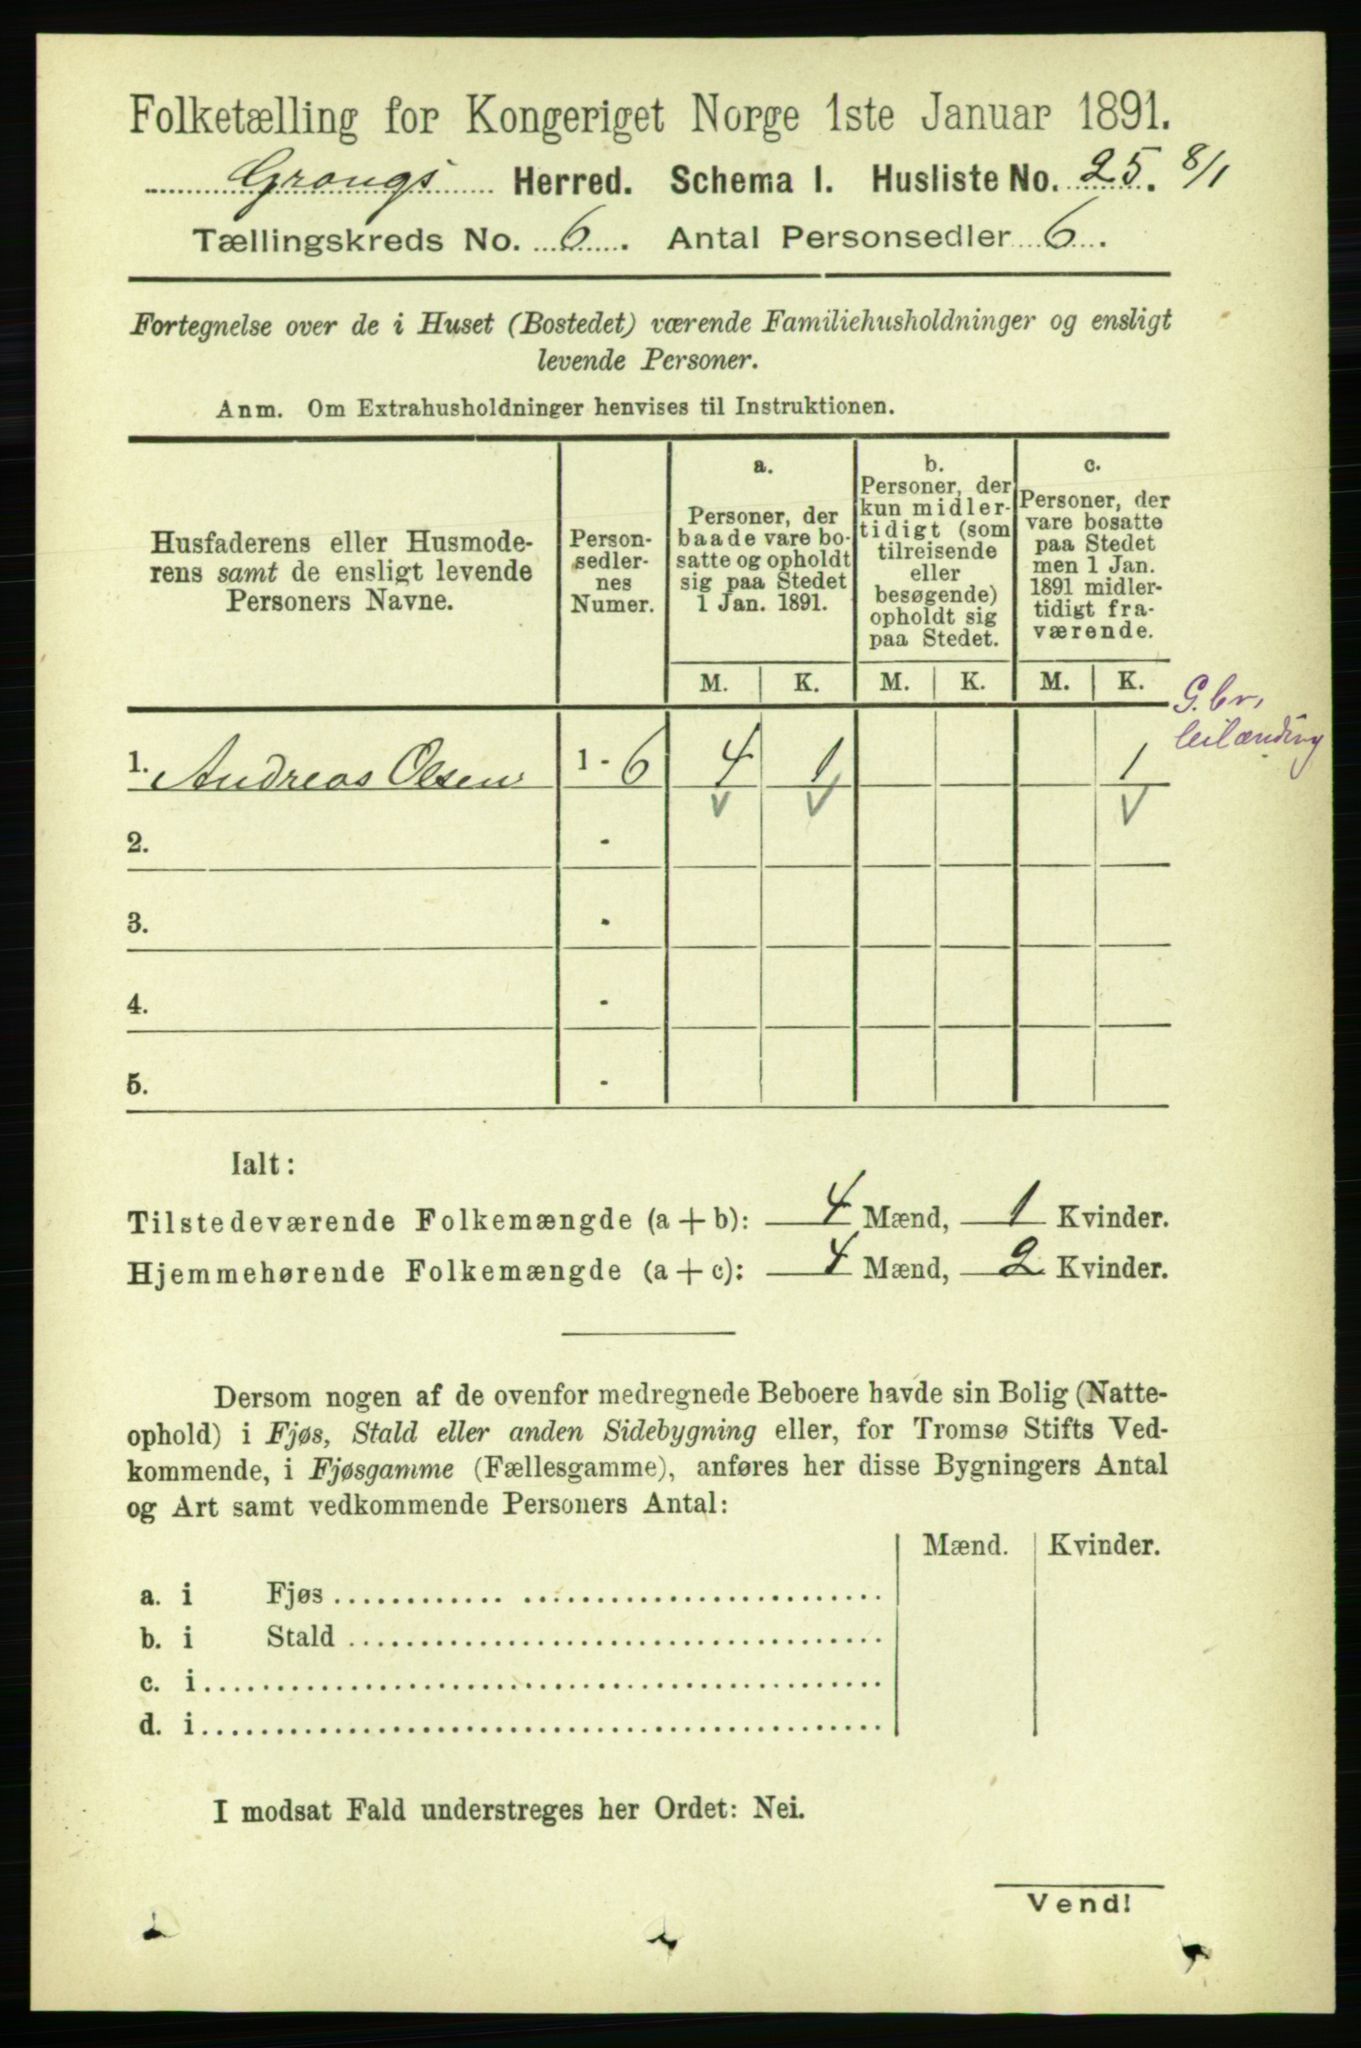 Folketælling for Kongeriget Norge 1ste Januar 1891.
Grongs Herred. Schema 1. Husliste No. 25. 8/1
Tællingskreds No. 6. Antal Personsedler 6.
Fortegnelse over de i Huset (Bostedet) værende Familiehusholdninger og ensligt
levende Personer.
Anm. Om Extrahusholdninger henvises til Instruktionen.
Husfaderens eller Husmode-
rens samt de ensligt levende
Personers Navne.
Person-
sedler-
nes
Numer.
a.
Personer, der
baade vare bo-
satte og opholdt
sig paa Stedet
1 Jan. 1891.
b.
Personer, der
kun midler-
tidigt (som
tilreisende
eller
besøgende)
opholdt sig
paa Stedet.
c.
Personer, der
vare bosatte
paa Stedet
men 1 Jan.
1891 midler-
tidigt fra-
værende.
M. K. M. K. M. K.
G.br.
leilænding
1. Andreas Olsen 1 - 6 4 1 1
2. -
3. -
4. -
5. -
Ialt:
Tilstedeværende Folkemængde (a + b): 4 Mænd, 1 Kvinder.
Hjemmehørende Folkemængde (a + c): 4 Mænd, 2 Kvinder.
Dersom nogen af de ovenfor medregnede Beboere havde sin Bolig (Natte-
ophold) i Fjøs, Stald eller anden Sidebygning eller, for Tromsø Stifts Ved-
kommende, i Fjøsgamme (Fællesgamme), anføres her disse Bygningers Antal
og Art samt vedkommende Personers Antal:
Mænd. Kvinder.
a. i Fjøs
b. i Stald
c. i
d. i
I modsat Fald understreges her Ordet: Nei.
Vend!